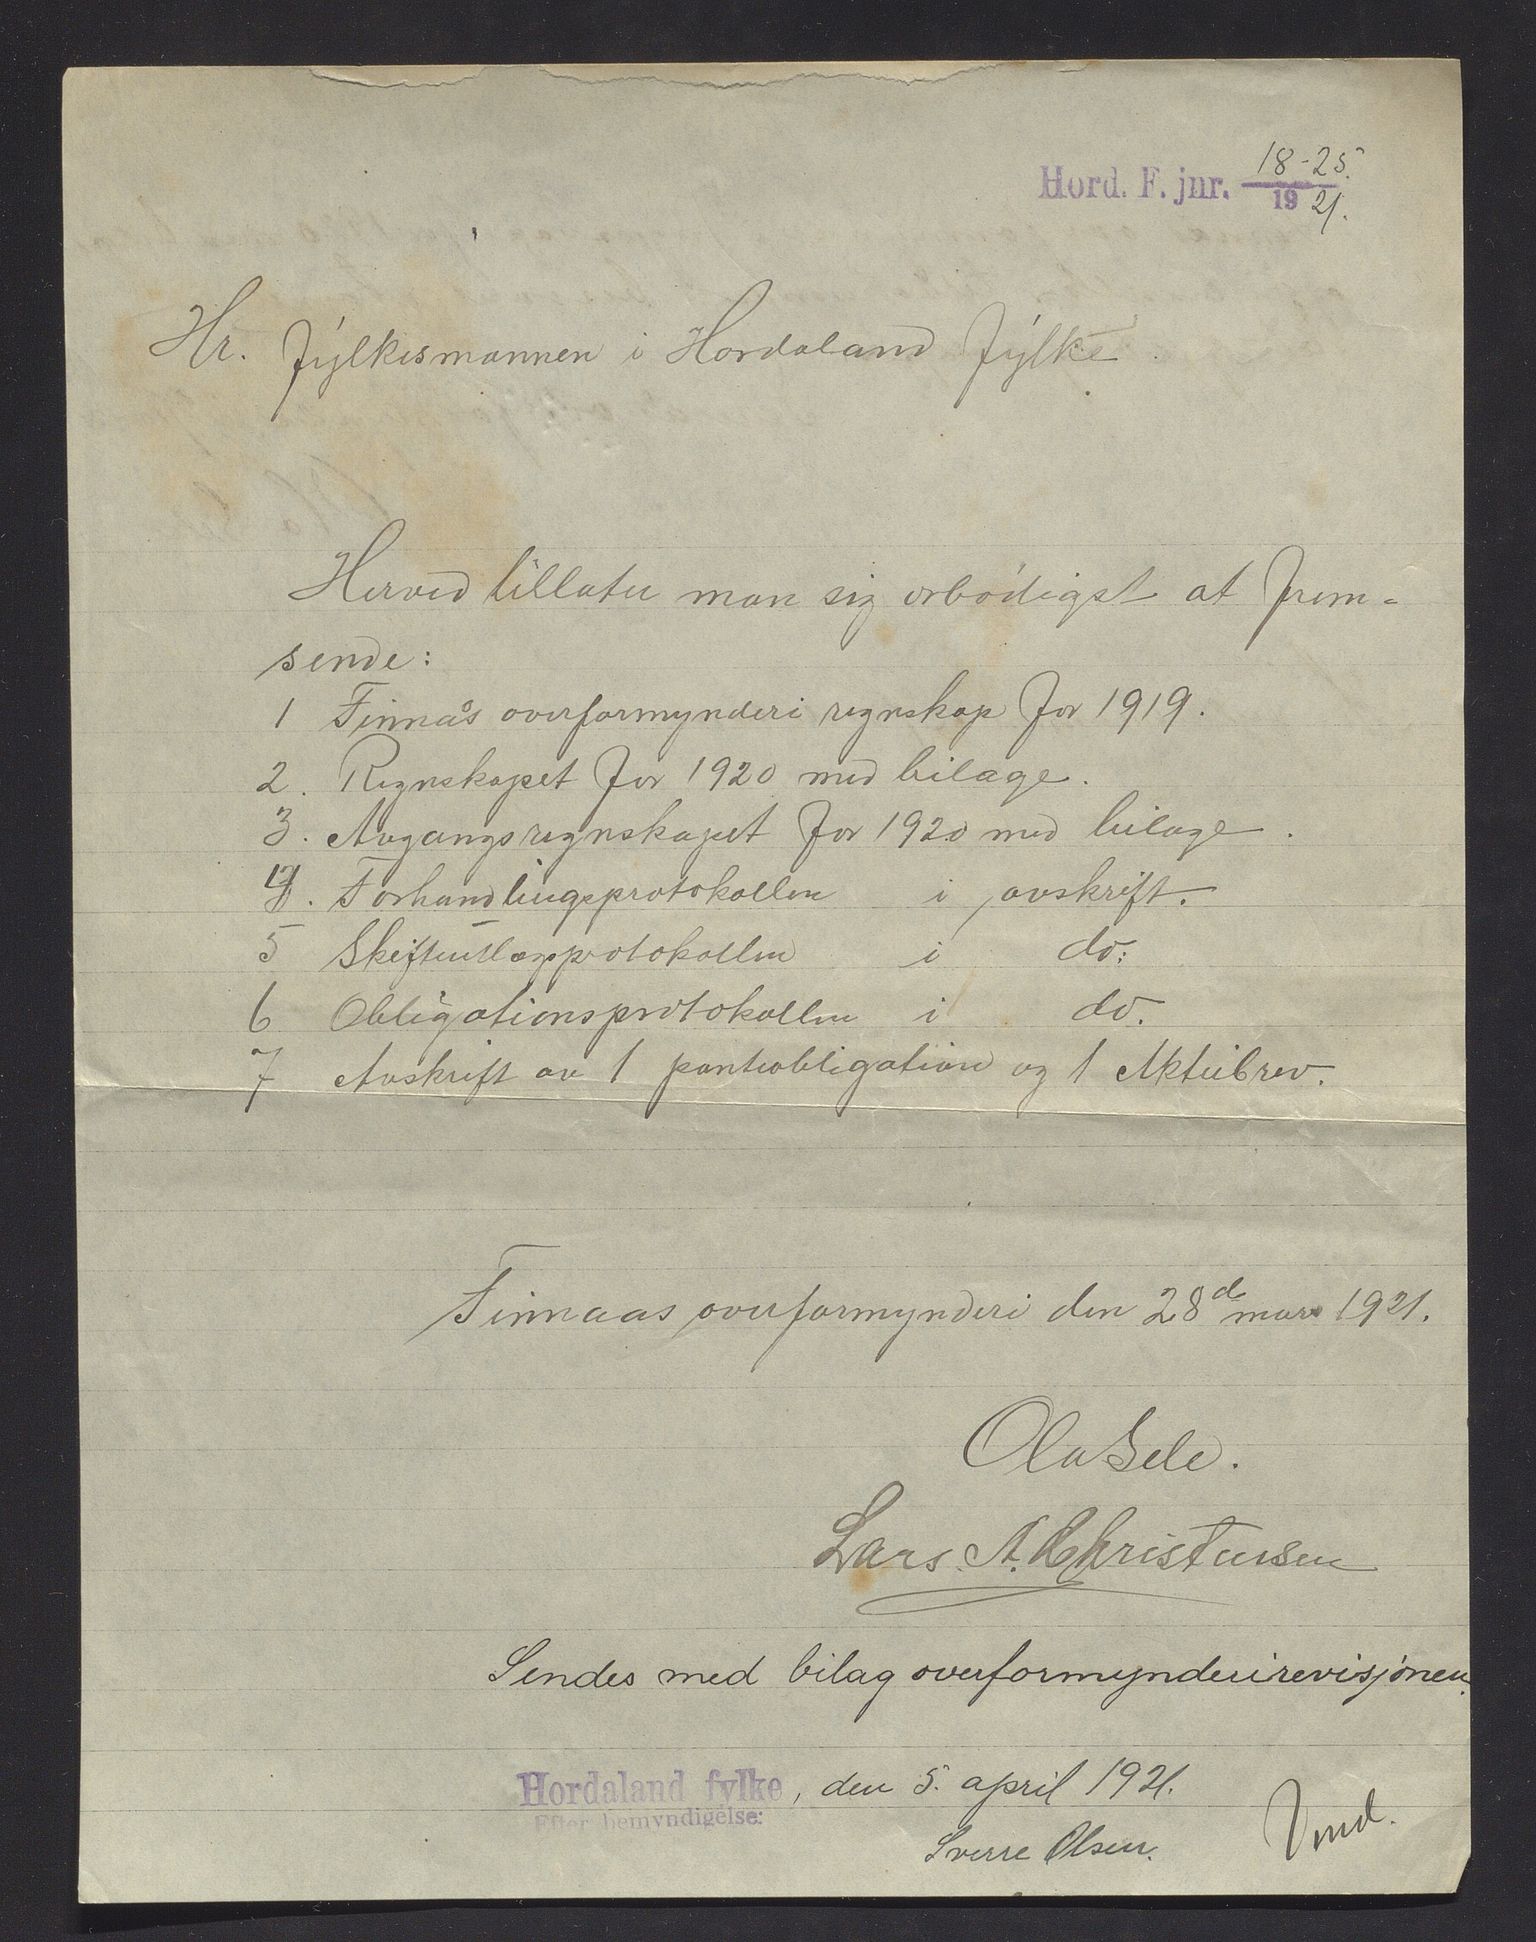 Hord. F. jnr. 18-25. / 1921.
Hr. Fylkesmannen i Hordaland Fylke.
Herved tillater man sig ærbødigst at frem=
sende:
1 Finnås overformynderi regnskap for 1919.
2. Regnskapet for 1920 med bilage.
3. Avgangsregnskapet for 1920 med bilage.
4. Forhandlingsprotokollen i avskrift.
5 Skifteutlægsprotokollen i do:
6 Obligationsprotokollen i do.
7 Avskrift av 1 panteobligation og 1 Aktiebrev.
Finnaas overformynderi den 28de mars 1921.
Ola Sele.
Lars. A. Christensen
Sendes med bilag overformynderirevisjonen.
Hordaland fylke, den 5. april 1921.
Efter bemyndigelse:
Sverre Olsen.
Vend.